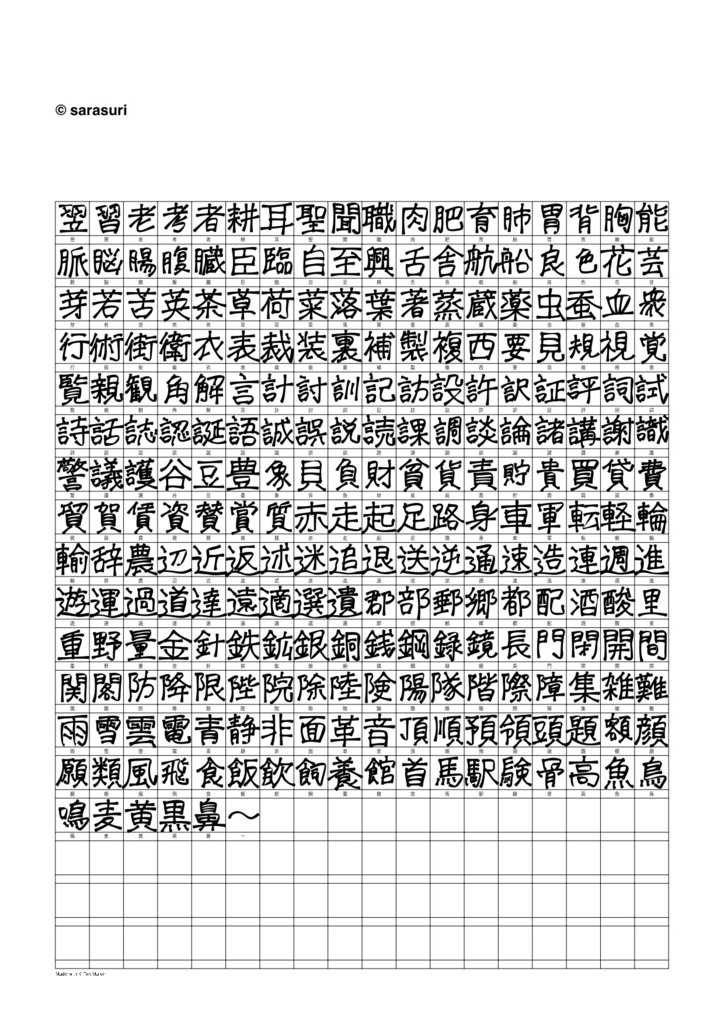 © sarasuri
翌習老考者耕耳聖聞職肉肥育肺胃背胸能
脈脳腸腹臓臣臨自至興舌舎航船良色花芸
芽若苦英茶草荷菜落葉著蒸蔵薬虫蚕血衆
行術街衛衣表裁装裏補製複西要見規視覚
覧親観角解言計討訓記訪設許訳証評詞試
詩話誌認誕語誠誤説読課調談論諸講謝識
警議護谷豆豊象貝負財貧貨責貯貴買貸費
貿賀賃資賛賞質赤走起足路身車軍転軽輪
輸辞農辺近返述迷追退送逆通速造連週進
遊運過道達遠適選遺郡部郵郷都配酒酸里
重野量金針鉄鉱銀銅銭鋼録鏡長門閉開間
関閣防降限陛院除陸険陽隊階際障集雑難
雨雪雲電青静非面革音頂順預領頭題額顔
願類風飛食飯飲飼養館首馬駅験骨高魚鳥
鳴麦黄黒鼻〜